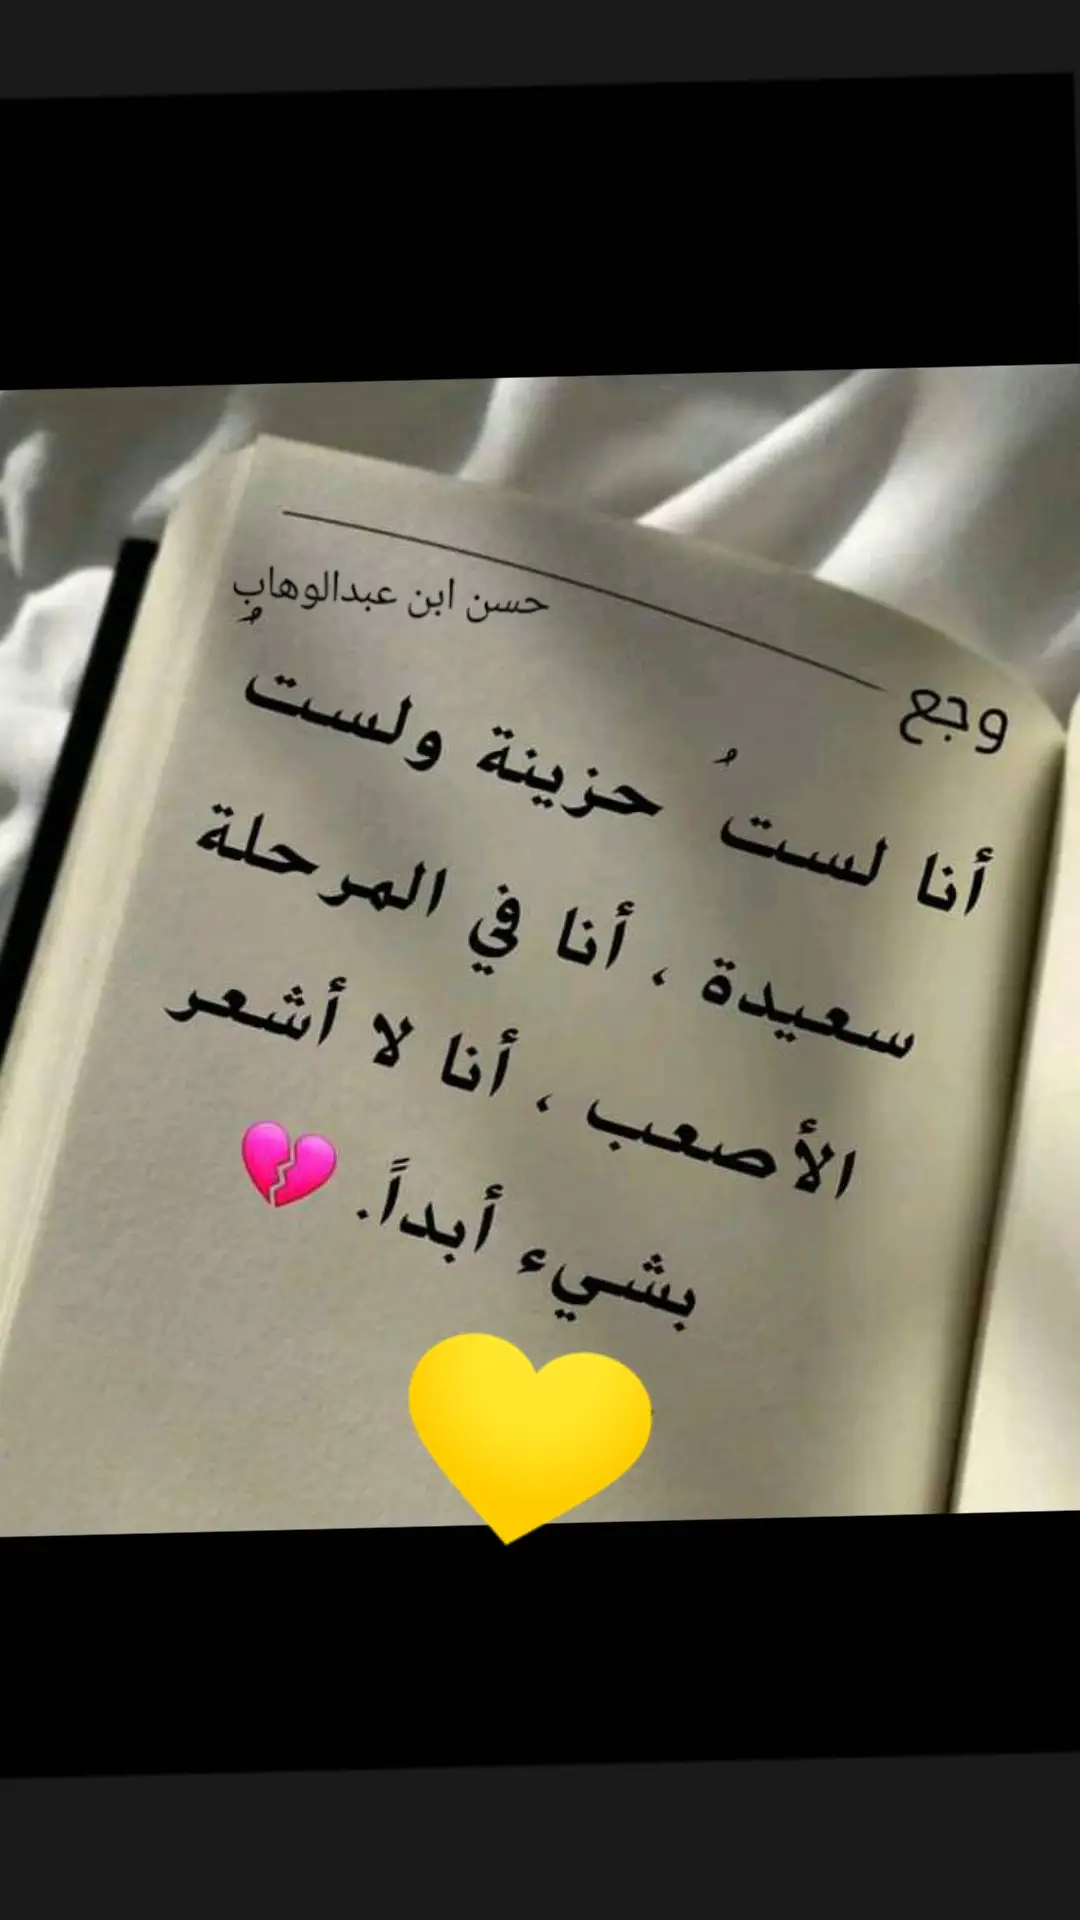 حسن ابن عبدالوهاب
وجع
أنا لستُ حزينة ولستُ
سعيدة ، أنا في المرحلة
الأصعب ، أنا لا أشعر
بشيء أبداً. 💔
💛